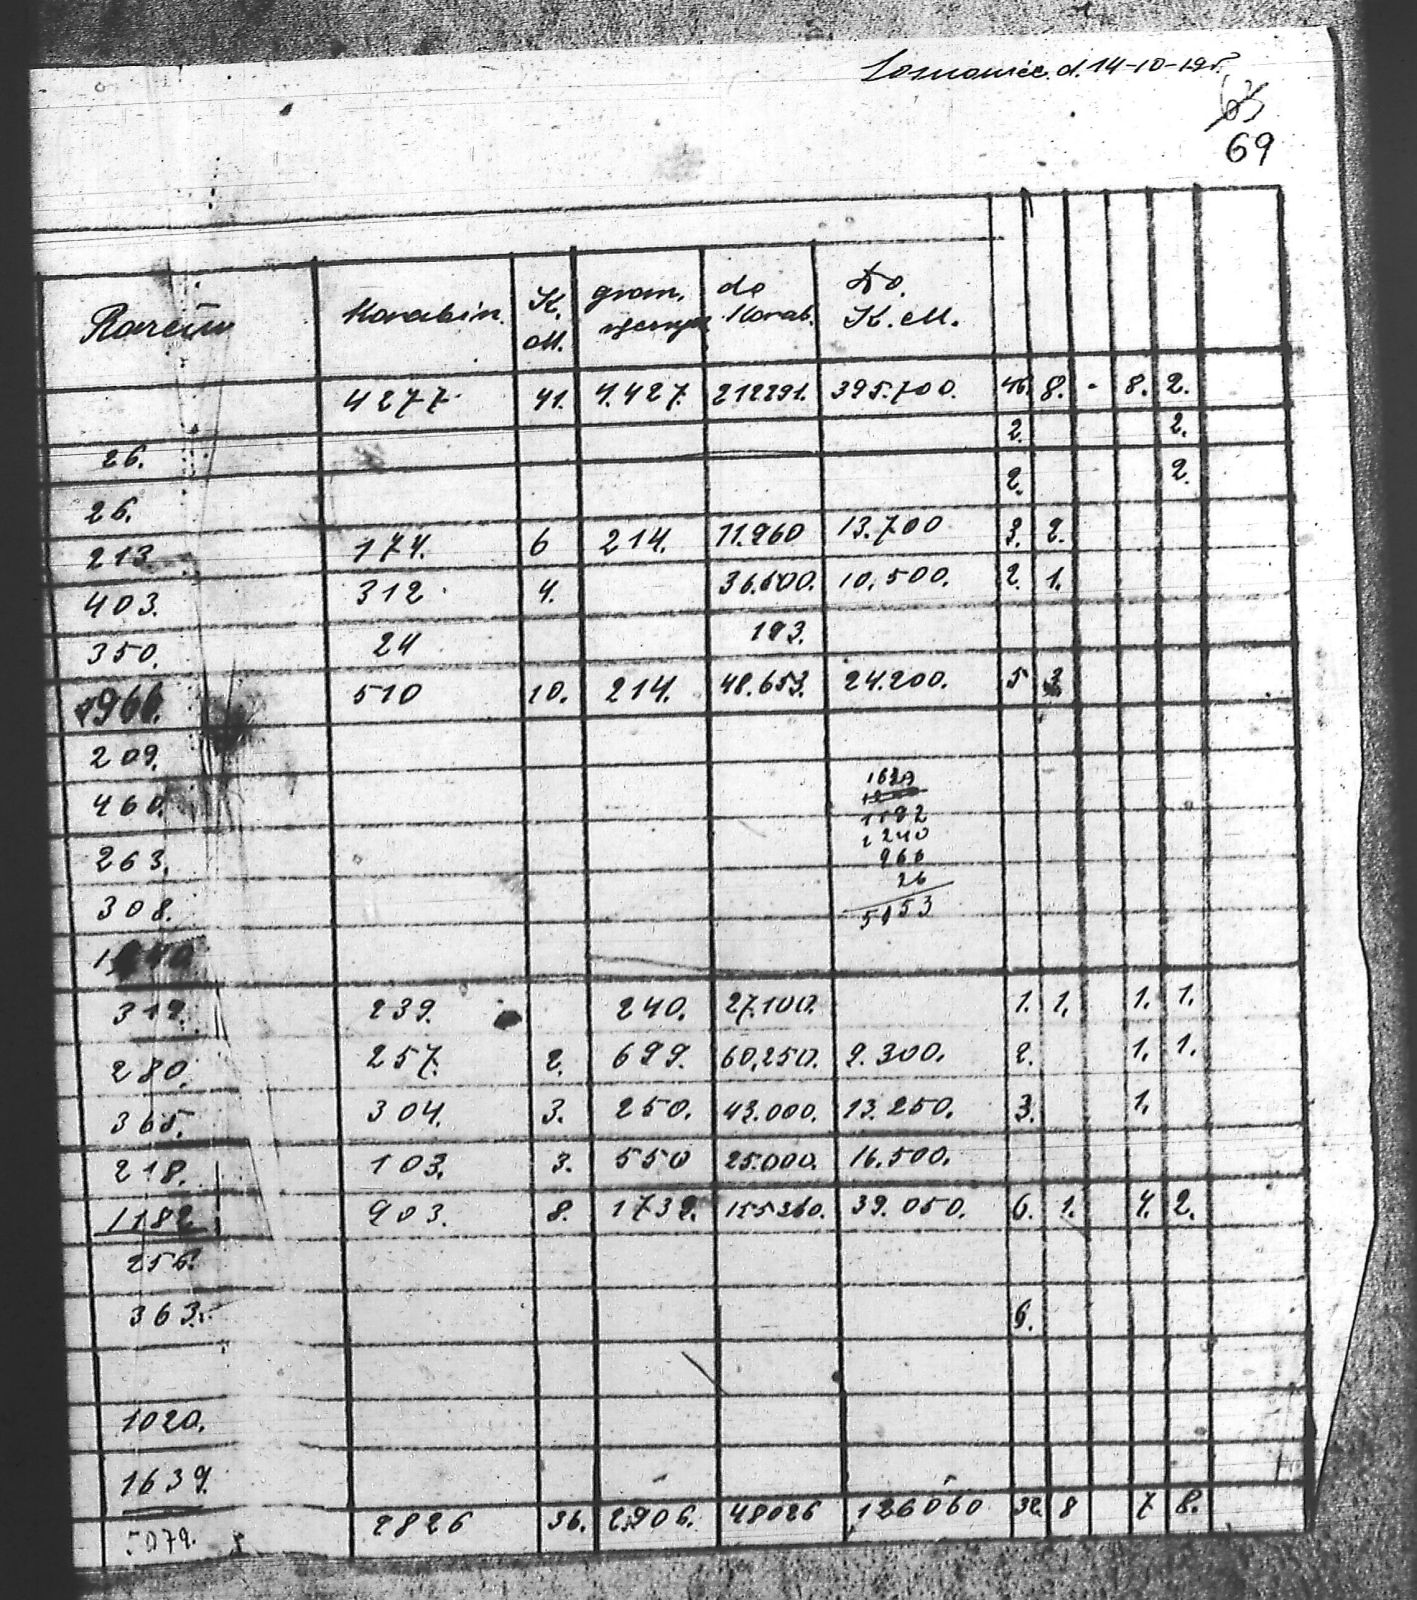 d. 14-10-19r.
69
Razem Karabin. K. M. gran. ręcznych do Karab. Do. K. M.
4277. 41. 1.427. 212291. 395.700. 46. 8. - 8. 2.
26. 2. 2.
26. 2. 2.
213. 174. 6 214. 11.960 13.700 3. 2.
403. 312. 4. 36.500. 10.500. 2. 1.
350. 24 193.
966. 510 10. 214. 48.653. 24.200. 5 3
209.
460.
263.
308.
1182
1240
966
26
5053
319. 239. 240. 27.100. 1. 1. 1. 1.
280. 257. 2. 699. 60.250. 9.300. 2. 1. 1.
365. 304. 3. 250. 43.000. 13.250. 3. 1.
218. 103. 3. 550 25.000. 16.500.
1182 903. 8. 1739. 155360. 39.050. 6. 1. 4. 2.
256.
363. 6.
1020.
1639.
5079. 2826 36. 2.906. 48026 126060 32. 8 7 8.